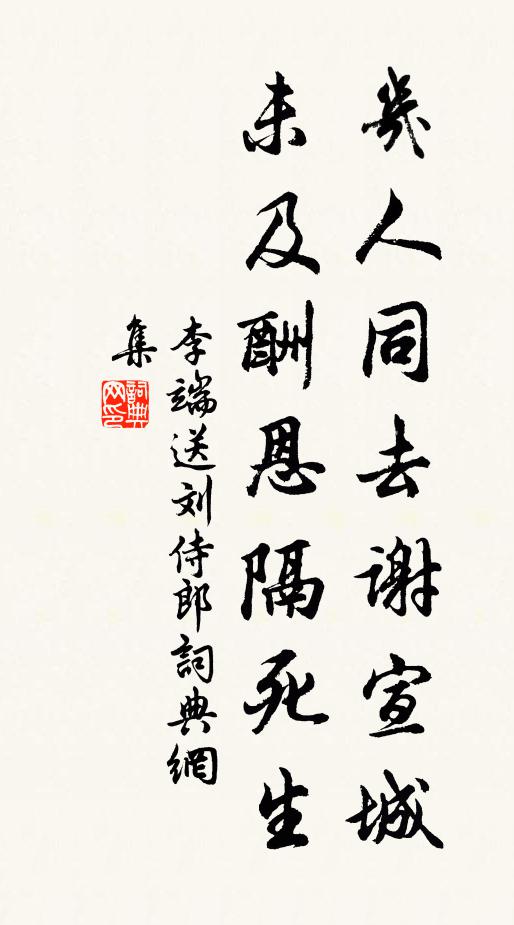 幾人同去谢宣城
未及酬恩隔死生
李端送刘侍郎詞典網
集
詞典
网印